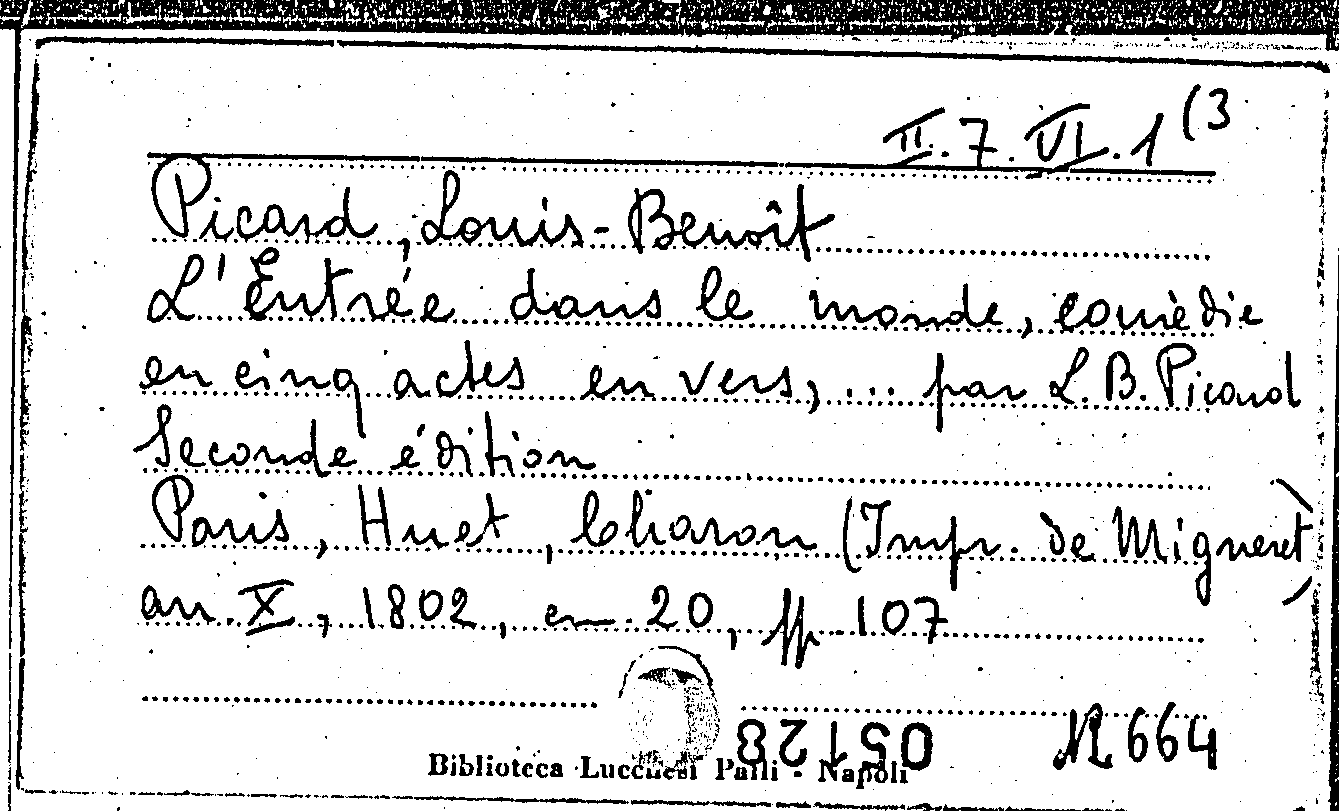 II.7.VI.1(3
Picard, Louis-Benoît
L'Entrée dans le monde, comèdie
en cinq actes en vers, ... par L.B. Picard
Seconde édition
Paris, Huet, Charon (Impr. de Migneret)
an X, 1802, cm. 20, pp. 107
05128
664
Biblioteca Lucchesi Palli - Napoli